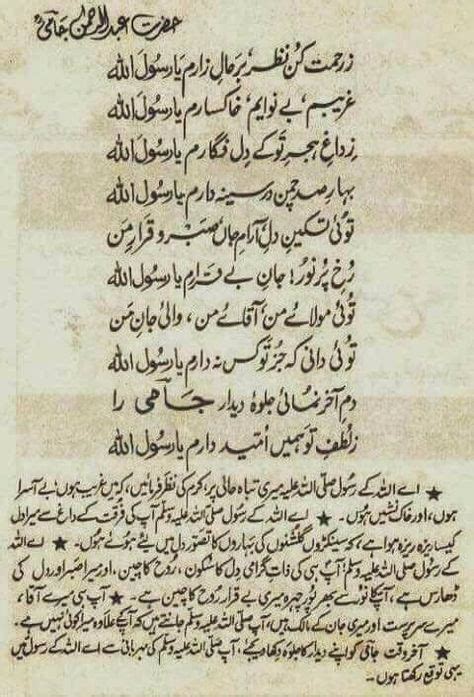 حضرت عبدالرحمٰن جامیؒ
زرحمت کُن نظر بر حالِ زارم یا رسول اللہ
غریبم، بے نوایم، خاکسارم یا رسول اللہ
زِ داغِ ہجرِ تو کے دل فگارم یا رسول اللہ
بہارِ صد چمن در سینہ دارم یا رسول اللہ
توئی تسکینِ دل، آرامِ جاں، صبر و قرارِ من
رُخِ پُر نور؛ جانِ بے قرارم یا رسول اللہ
توئی مولائے من، آقائے من، والئ جانِ من
توئی دانی کہ جُز تو کس نہ دارم یا رسول اللہ
دمِ آخر نمائی جلوۂ دیدار جامی را
زلطفِ تو ہمیں اُمّید دارم یا رسول اللہ
★ اے اللہ کے رسول صلی اللہ علیہ میری تباہ حالی پر، کرم کی نظر فرمائیں، کہ میں غریب ہوں، بے آسرا
ہوں، اور خاک نشیں ہوں۔ ★ اے اللہ کے رسول صلی اللہ علیہ وسلم آپ کی فرقت کے داغ سے میرا دل
کیسا ریزہ ریزہ ہوا ہے، کہ سینکڑوں گلشنوں کی بہاروں کا تصوّر دل میں لیئے ہوئے ہُوں۔ ★ اے اللہ
کے رسول صلی اللہ علیہ وسلم! آپ ہی کی ذاتِ گرامی دل کا سکون، روح کا چین، اور میرا صبر اور دل کی
ڈھارس ہے، آپکے نُور سے بھر پُور چہرہ میری بے قرار روح کا چین ہے۔ ★ آپ ہی میرے آقا،
میرے سرپرست اور میری جان کے مالک ہیں، آپ صلی اللہ علیہ وسلم جانتے ہیں کہ آپکے علاوہ میرا کوئی نہیں ہے۔
★ آخر وقت جامی کو اپنے دیدار کا جلوہ دکھا دیجئے، آپ صلی اللہ علیہ وسلم کی مہربانی سے اے اللہ کے رسول میں
یہی توقع رکھتا ہوں۔